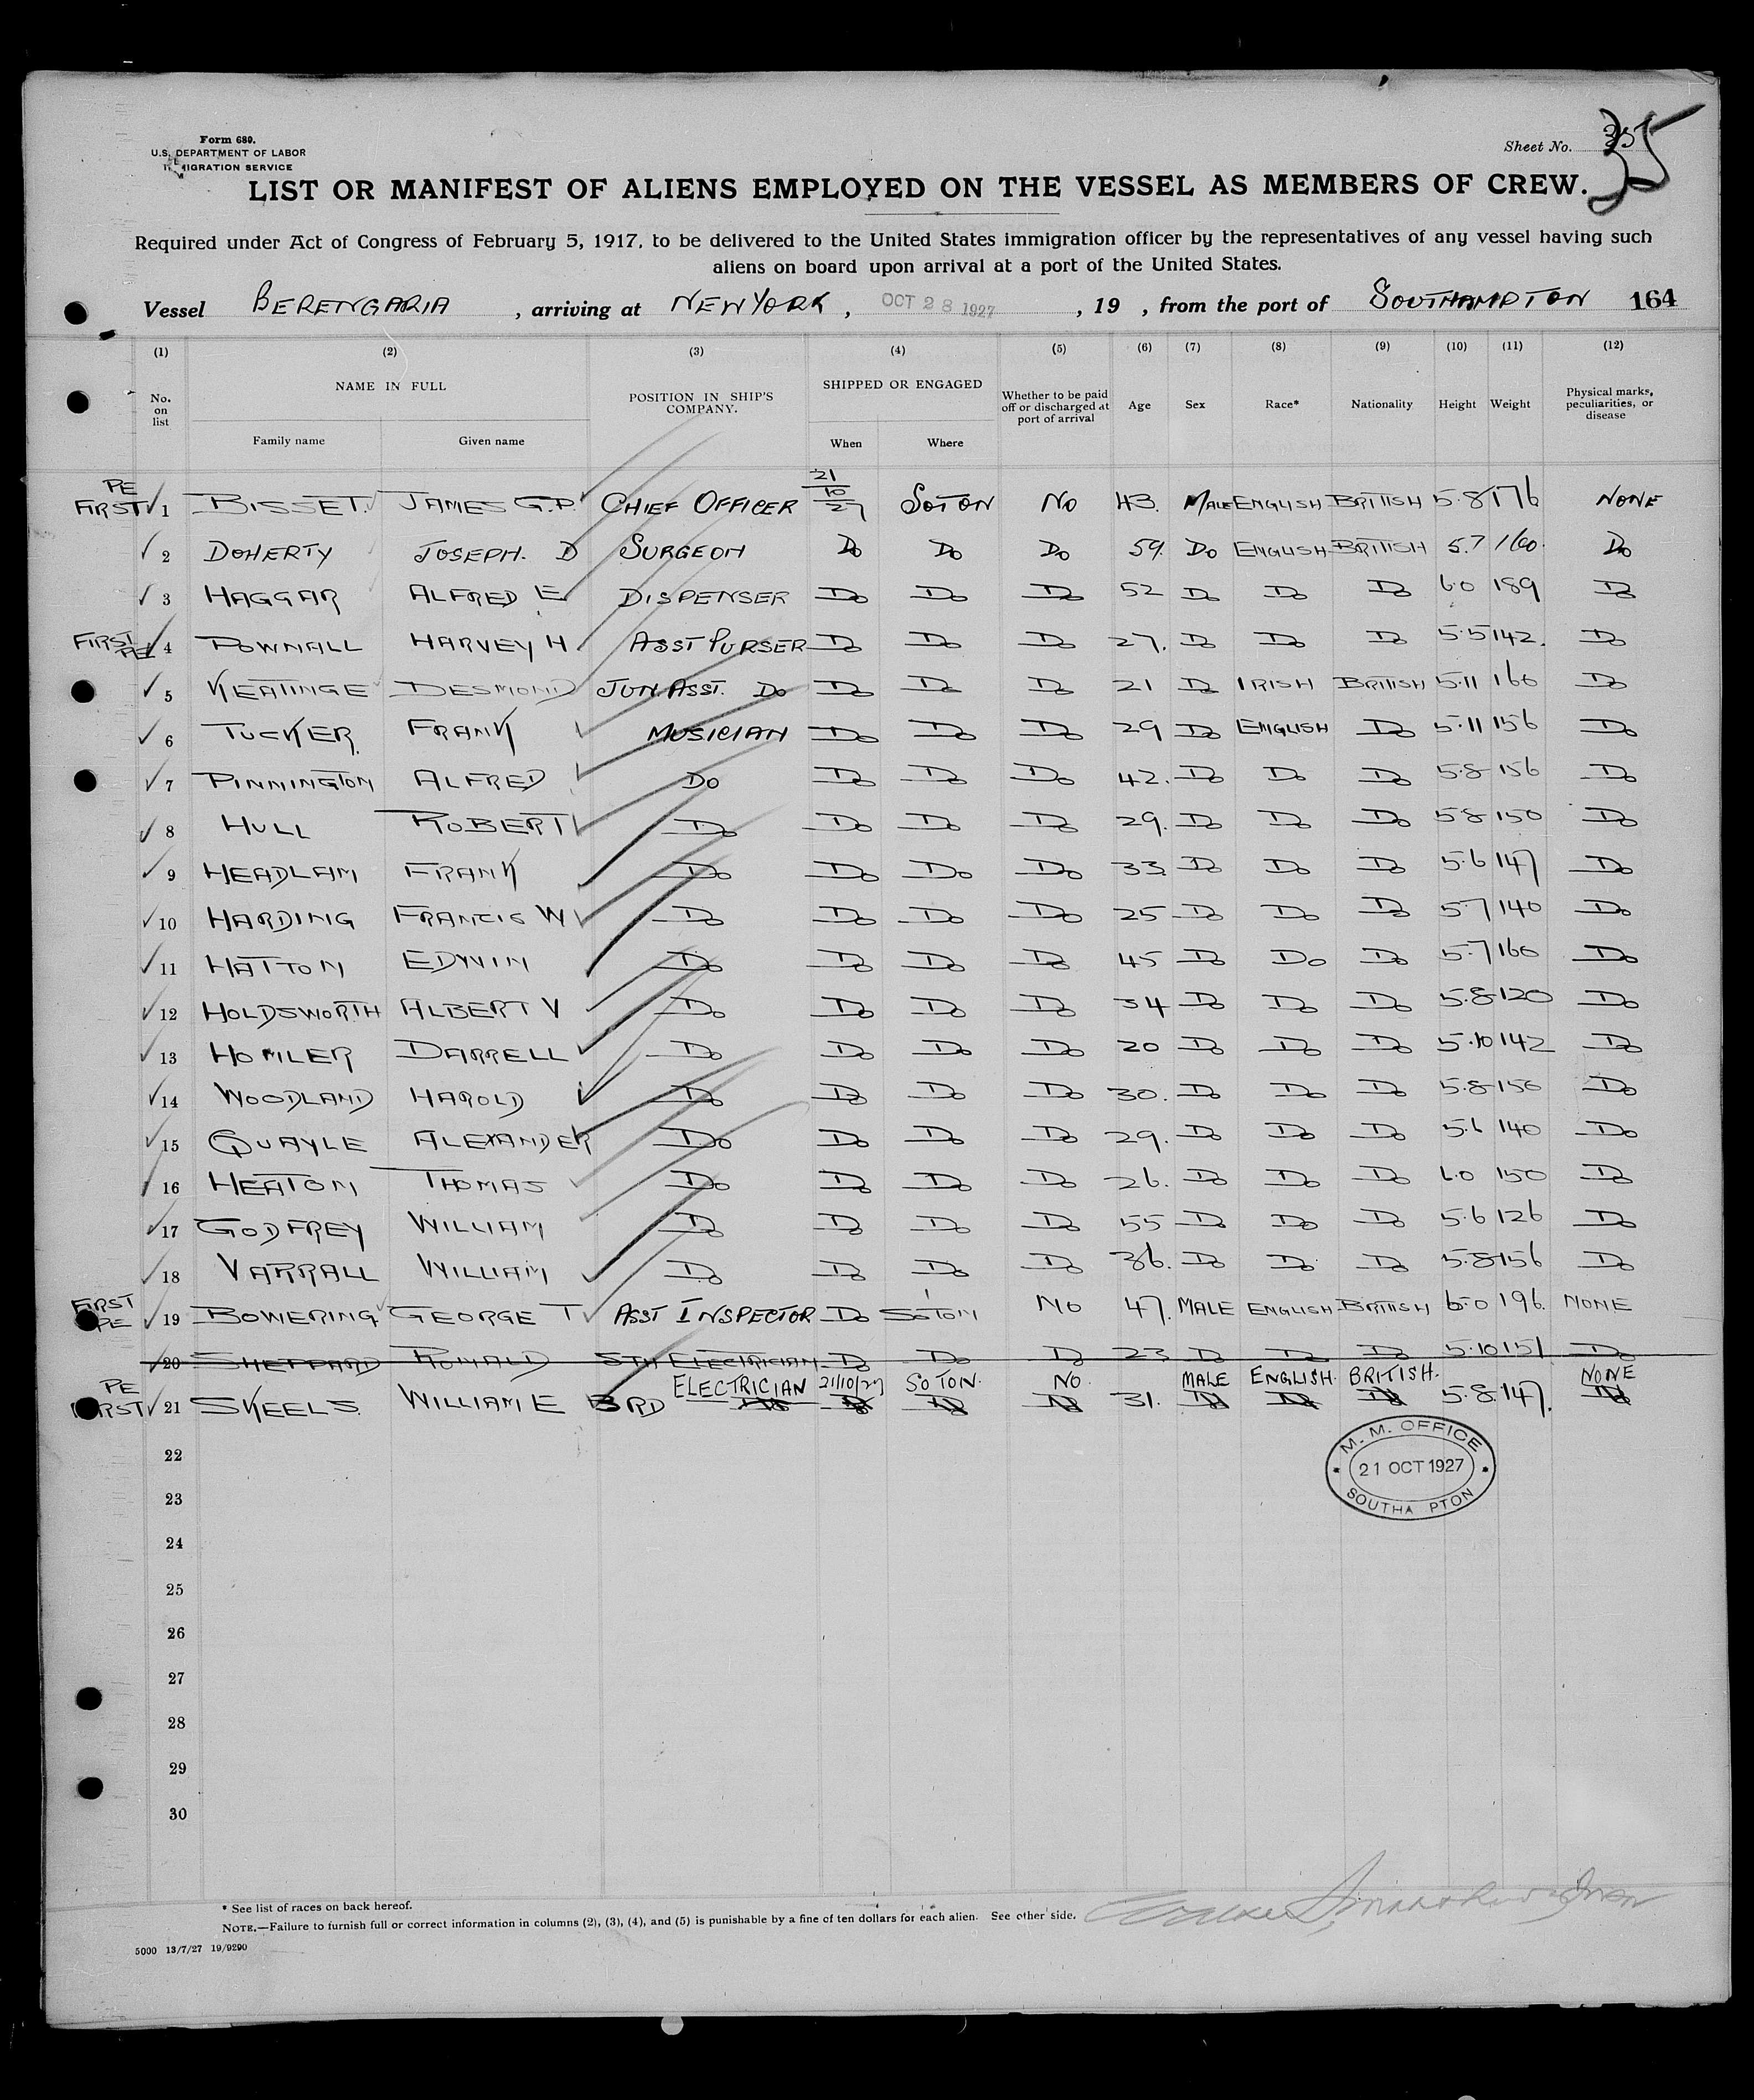 Form 680.
U.S. DEPARTMENT OF LABOR
IMMIGRATION SERVICE
Sheet No. 35
LIST OR MANIFEST OF ALIENS EMPLOYED ON THE VESSEL AS MEMBERS OF CREW.
Required under Act of Congress of February 5, 1917, to be delivered to the United States immigration officer by the representatives of any vessel having such
aliens on board upon arrival at a port of the United States.
Vessel BERENGARIA , arriving at NEW YORK , OCT 28 1927 , 19 , from the port of SOUTHAMPTON 164
(1) (2) (3) (4) (5) (6) (7) (8) (9) (10) (11) (12)
No. on list NAME IN FULL Family name Given name POSITION IN SHIP'S COMPANY. SHIPPED OR ENGAGED When Where Whether to be paid off or discharged at port of arrival Age Sex Race* Nationality Height Weight Physical marks, peculiarities, or disease
PE FIRST 1 BISSET. JAMES G.P. CHIEF OFFICER 21/10/27 SOTON NO 43. MALE ENGLISH BRITISH 5.8 176 NONE
2 DOHERTY JOSEPH. D SURGEON Do Do Do 59. Do ENGLISH BRITISH 5.7 160. Do
3 HAGGAR ALFRED E DISPENSER Do Do Do 52 Do Do Do 6.0 189 Do
FIRST PE 4 POWNALL HARVEY H ASST PURSER Do Do Do 27. Do Do Do 5.5 142. Do
5 KEATINGE DESMOND JUN ASST. Do Do Do Do 21 Do IRISH BRITISH 5.11 160 Do
6 TUCKER FRANK MUSICIAN Do Do Do 29 Do ENGLISH Do 5.11 156 Do
7 PINNINGTON ALFRED Do Do Do Do 42. Do Do Do 5.8 156 Do
8 HULL ROBERT Do Do Do Do 29. Do Do Do 5.8 150 Do
9 HEADLAM FRANK Do Do Do Do 33 Do Do Do 5.6 147 Do
10 HARDING FRANCIS W Do Do Do Do 25 Do Do Do 5.7 140 Do
11 HATTON EDWIN Do Do Do Do 45 Do Do Do 5.7 160 Do
12 HOLDSWORTH ALBERT V Do Do Do Do 34 Do Do Do 5.8 120 Do
13 DARRELL Do Do Do Do 20 Do Do Do 5.10 142 Do
14 WOODLAND HAROLD Do Do Do Do 30. Do Do Do 5.8 150 Do
15 QUAYLE ALEXANDER Do Do Do Do 29. Do Do Do 5.6 140 Do
16 HEATON THOMAS Do Do Do Do 26. Do Do Do 6.0 150 Do
17 GODFREY WILLIAM Do Do Do Do 55 Do Do Do 5.6 126 Do
18 VARRALL WILLIAM Do Do Do Do 36. Do Do Do 5.8 156 Do
FIRST PE 19 BOWERING GEORGE T ASST INSPECTOR Do SOTON NO 47. MALE ENGLISH BRITISH 6.0 196. NONE
20 SHEPPARD RONALD 5TH ELECTRICIAN Do Do Do 23 Do Do Do 5.10 151 Do
PE FIRST 21 SKEELS WILLIAM E 3RD ELECTRICIAN 21/10/27 SOTON. NO. 31. MALE ENGLISH. BRITISH. 5.8. 147. NONE
M. M. OFFICE
21 OCT 1927
SOUTHA PTON
22
23
24
25
26
27
28
29
30
* See list of races on back hereof.
NOTE.—Failure to furnish full or correct information in columns (2), (3), (4), and (5) is punishable by a fine of ten dollars for each alien. See other side.
5000 13/7/27 19/9290